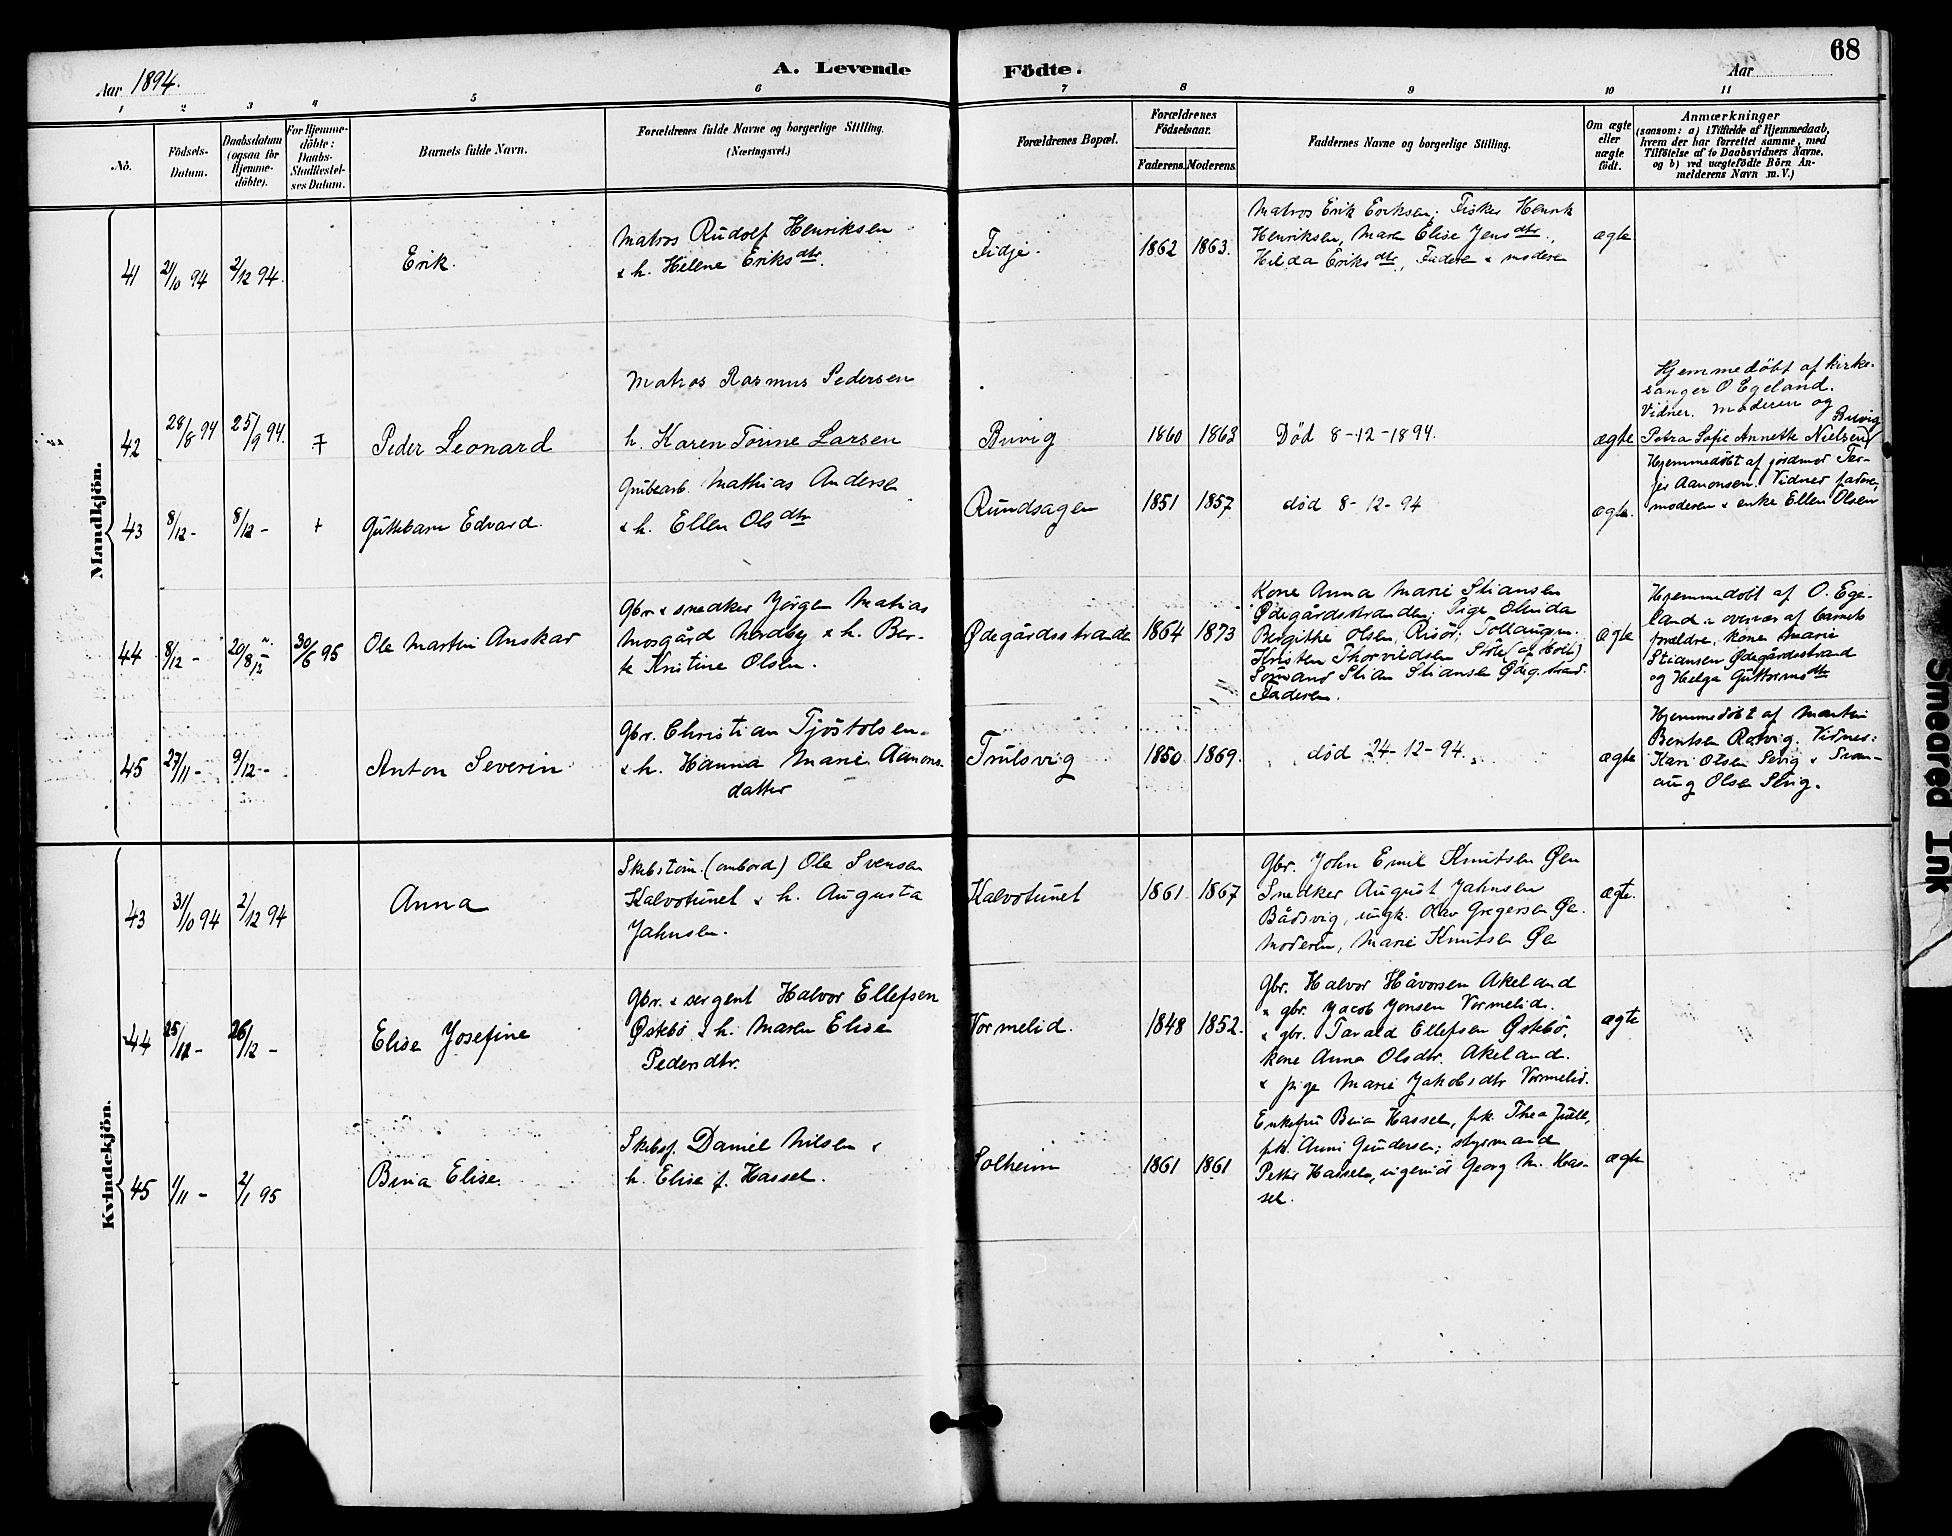 68
Aar 1894.
A. Levende Födte.
Aar
1 2 3 4 5 6 7 8 9 10 11
No.
Födsels-Datum.
Daabsdatum (ogsaa for Hjemme-döbte).
For Hjemme-döbte: Daabs-Stadfæstel-ses Datum.
Barnets fulde Navn.
Forældrenes fulde Navne og borgerlige Stilling. (Næringsvei.)
Forældrenes Bopæl.
Forældrenes Födselsaar.
Faderens. Moderens.
Faddernes Navne og borgerlige Stilling.
Om ægte eller uægte födt.
Anmærkninger
(saasom: a) i Tilfælde af Hjemmedaab,
hvem der har forrettet samme, med
Tilföielse af to Daabsvidners Navne,
og b) ved uægtefödte Börn An-
melderens Navn m. V.)
Mandkjön.
41 21/10 94 2/12 94. Erik.
Matros Rudolf Henriksen
& h. Helene Eriksdtr.
Fidje. 1862 1863.
Matros Erik Eriksen; Fisker Henrik
Henriksen, Maren Elise Jensdtr.,
Hilda Eriksdtr., Faderen & moderen
ægte
42 28/8 94 25/9 94. Peder Leonard
Matros Rasmus Pedersen
h. Karen Torine Larsen
Buvig 1860 1863
Død 8-12-1894.
ægte
Hjemmedöbt af kirke-
sanger O Egeland.
Vidner. Moderen og
Petra Sofie Annette Nielsen Buvig
43 8/12 - 8/12 - + Guttebarn Edvard.
Grubearb. Mathias Andersen
& h. Ellen Olsdtr
Rundsagen 1851 1857
død 8-12-94
ægte.
Hjemmedöbt af jordmor Ter-
jer Aanonsen. Vidner faderen,
moderen & enke Ellen Olsen
44 8/12 - 30/6 95 Ole Martin Anskar
Gbr. & snedker Jörgen Matias
Mosgård Nordby & h. Ber-
te Kristine Olsen.
Ødegårdsstrande 1864 1873
Kone Anna Marie Stiansen
Ødegårdsstranden; Pige
Bergithe Olsen, Risör;
Kristen Thorvildsen
Sömand Stian Stiansen Ødeg.strand.
Faderen.
ægte
Hjemmedöbt af O. Ege-
land i overvær af barnets
forældre, kone Marie
Stiansen Ødegårdsstrand
og Helga Guttormsdtr
45 27/11 - 9/12 - Anton Severin
Gbr. Christian Tjöstolsen
& h. Hanna Marie Aanons-
datter
Trulsvig 1850 1869.
død 24-12-94.
ægte
Hjemmedöbt af Martin
Bentsen Rotvig. Vidner:
Kari Olsen Sevig &
Olsen Sevig.
Kvindekjön.
43 31/10 94 2/12 94 Anna
Skibstöm. (ombord) Ole Svensen
Kalvotunet & h. Augusta
Jahnsen.
Kalvotunet 1861 1867
Gbr. John Emil Knutsen Øen
Snedker August Jahnsen
Bådsvig, ungk. Olav Gregersen Øen.
Moderen, Marie Knutsen Øen
ægte.
44 25/11 - 26/12 - Elise Josefine
Gbr. & sergent Halvor Ellefsen
Östebö & h. Maren Elise
Pedersdtr.
Vormelid. 1848 1852.
Gbr. Halvor Håvorsen Akeland
& gbr. Jacob Jonsen Vormelid.
& gbr. Tarald Ellefsen Østebö,
kone Anna Olsdtr. Akeland.
& pige Marie Jakobsdtr Vormelid.
ægte
45 1/11 - 2/1 95 Bina Elise.
Skibsf. Daniel Nilsen &
h. Elise f. Hassel.
Solheim 1861 1861
Enkefru Bina Hassel, frk. Thea Juell,
frk. Anni Gundersen; styrmand
Petter Hassel, ingeniör Georg M. Has-
sel.
ægte
Smeared Ink